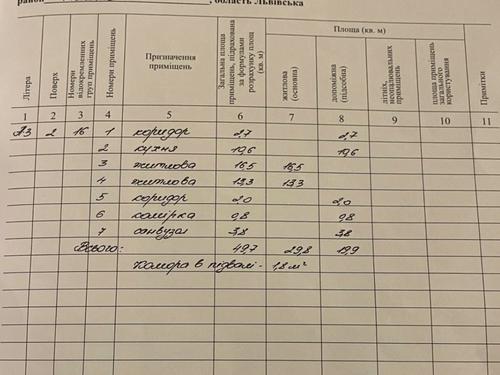 район , область Львівська
Літера
Поверх
Номери відокремлених груп приміщень
Номери приміщень
Призначення приміщень
Загальна площа приміщень, підрахована за формулами розрахунку площ (кв. м)
Площа (кв. м)
житлова (основна)
допоміжна (підсобна)
літніх, неопалювальних приміщень
площа приміщень загального користування
Примітки
1 2 3 4 5 6 7 8 9 10 11
2 16 1 коридор 2,7 2,7
2 кухня 10,6 10,6
3 житлова 16,5 16,5
4 житлова 13,3 13,3
5 коридор 2,0 2,0
6 комірка 0,8 0,8
7 санвузол 3,8 3,8
Всього: 49,7 29,8 19,9
Комора в підвалі - 1,8 м²